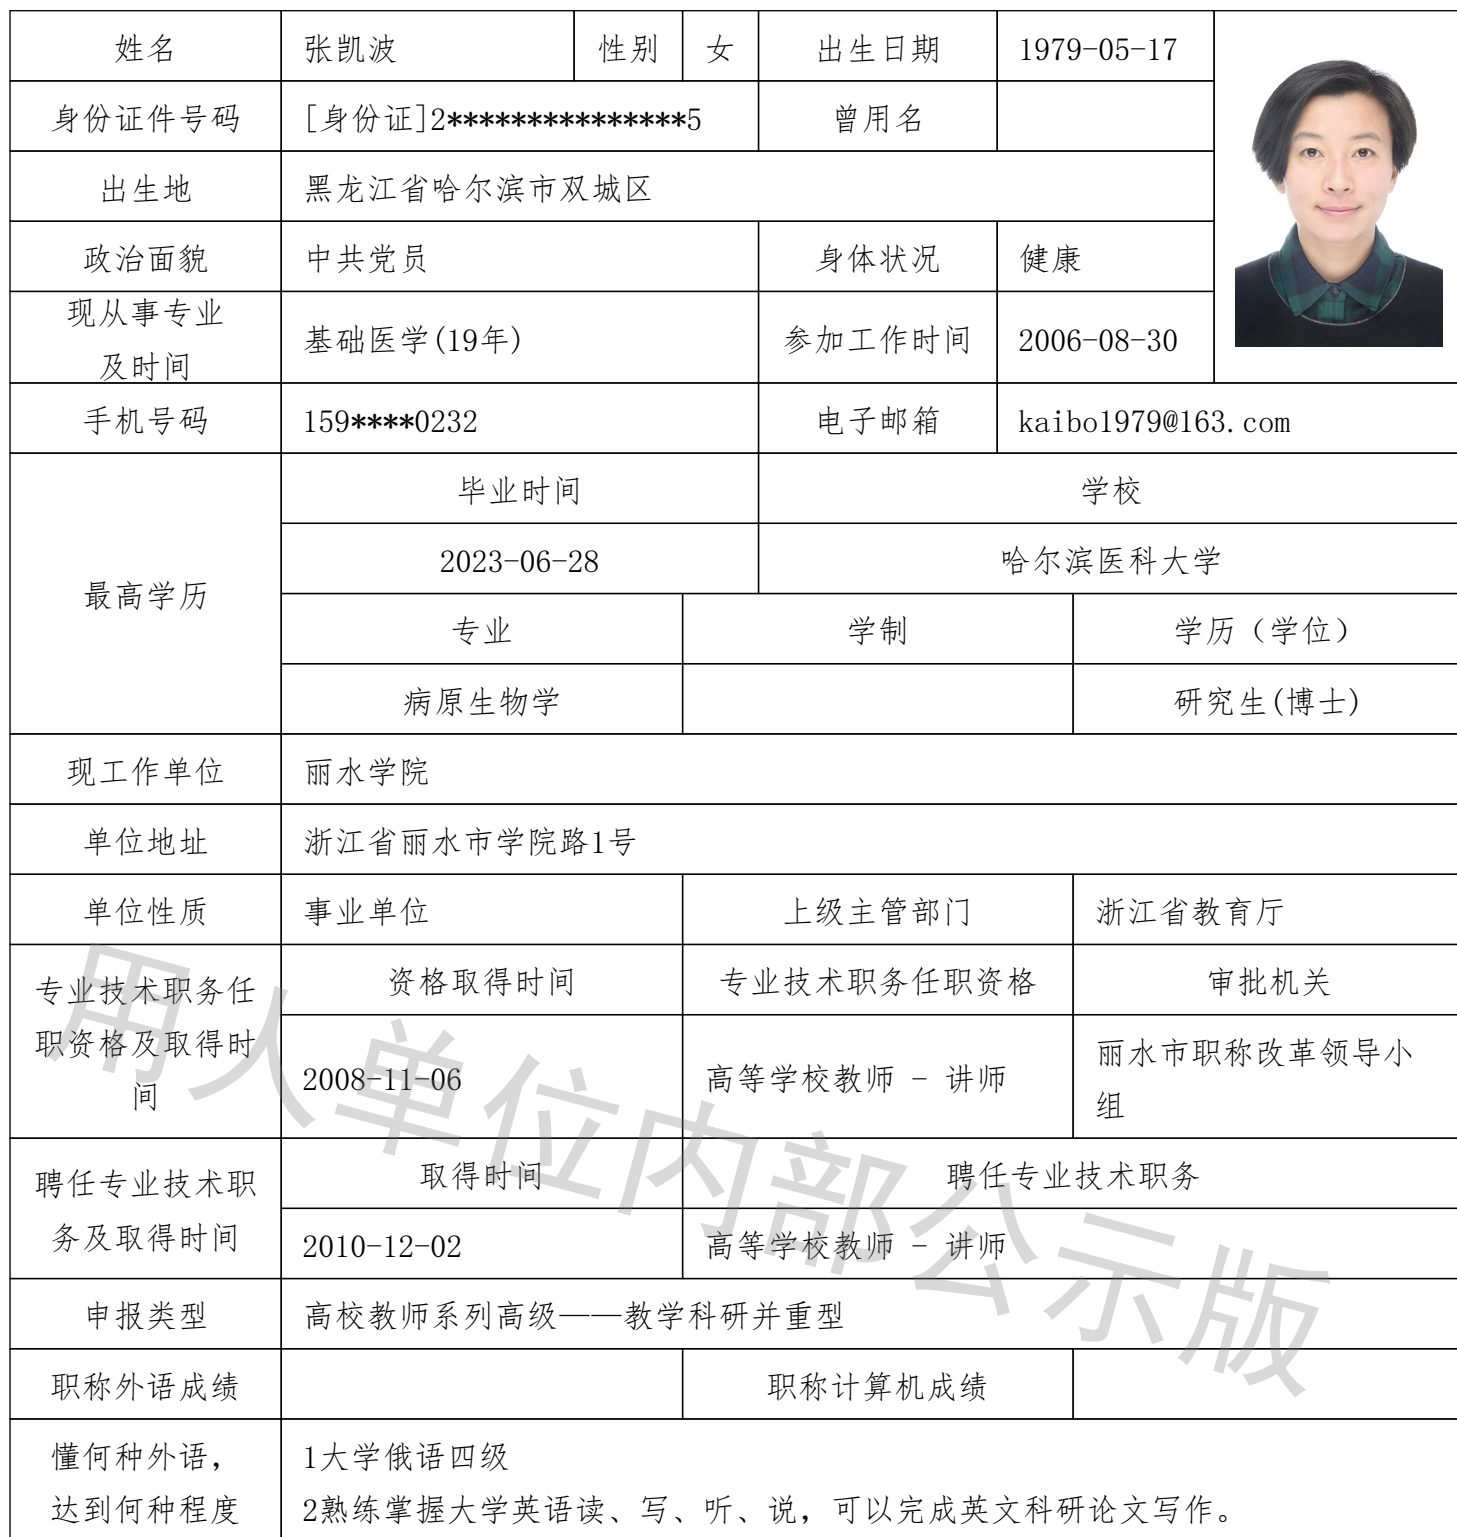 姓名 张凯波 性别 女 出生日期 1979-05-17
身份证件号码 [身份证]2***************5 曾用名
出生地 黑龙江省哈尔滨市双城区
政治面貌 中共党员 身体状况 健康
现从事专业
及时间 基础医学(19年) 参加工作时间 2006-08-30
手机号码 159****0232 电子邮箱 kaibo1979@163.com
最高学历
毕业时间 学校
2023-06-28 哈尔滨医科大学
专业 学制 学历（学位）
病原生物学 研究生(博士)
现工作单位 丽水学院
单位地址 浙江省丽水市学院路1号
单位性质 事业单位 上级主管部门 浙江省教育厅
专业技术职务任
职资格及取得时
间
资格取得时间 专业技术职务任职资格 审批机关
2008-11-06 高等学校教师 - 讲师 丽水市职称改革领导小
组
聘任专业技术职
务及取得时间
取得时间 聘任专业技术职务
2010-12-02 高等学校教师 - 讲师
申报类型 高校教师系列高级——教学科研并重型
职称外语成绩 职称计算机成绩
懂何种外语，
达到何种程度
1大学俄语四级
2熟练掌握大学英语读、写、听、说，可以完成英文科研论文写作。
用人单位内部公示版